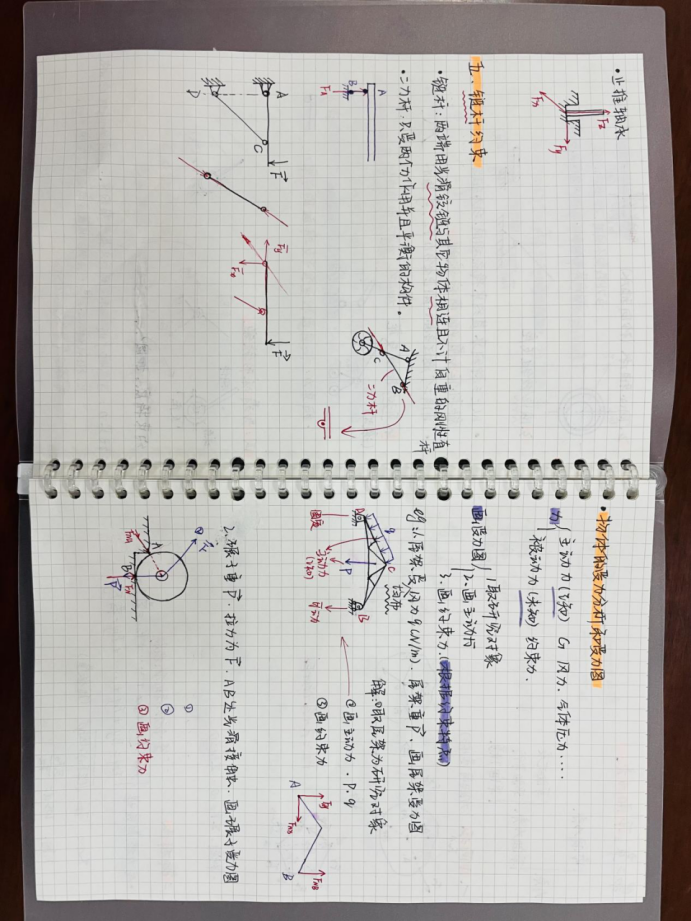 ·止推轴承
Fx
Fz
Fy
五、链杆约束
·链杆：两端用光滑铰链与其它物体相连且不计自重的刚性直杆
A
B
FA
·二力杆：只受两个力作用并且平衡的构件。
A
B
C
二力杆
A
D
C
F
Fy
Fx
F
·物体的受力分析和受力图
力
主动力(已知) G 风力、气体压力....
被动力(未知) 约束力.
画受力图
1.取研究对象
2.画主动力
3.画约束力.(根据约束特点)
eg:1.屋架受风力q(N/m). 屋架重P. 画屋架受力图.
解:①取屋架为研究对象
②画主动力. P. q
③画约束力
q
C
A
B
P
固定
主动力
(已知)
可动
A
Fy
B
FNB
2.碾子重P. 拉力为F. A B处光滑接触. 画碾子受力图
①
②
③画约束力
A
B
FNA
P